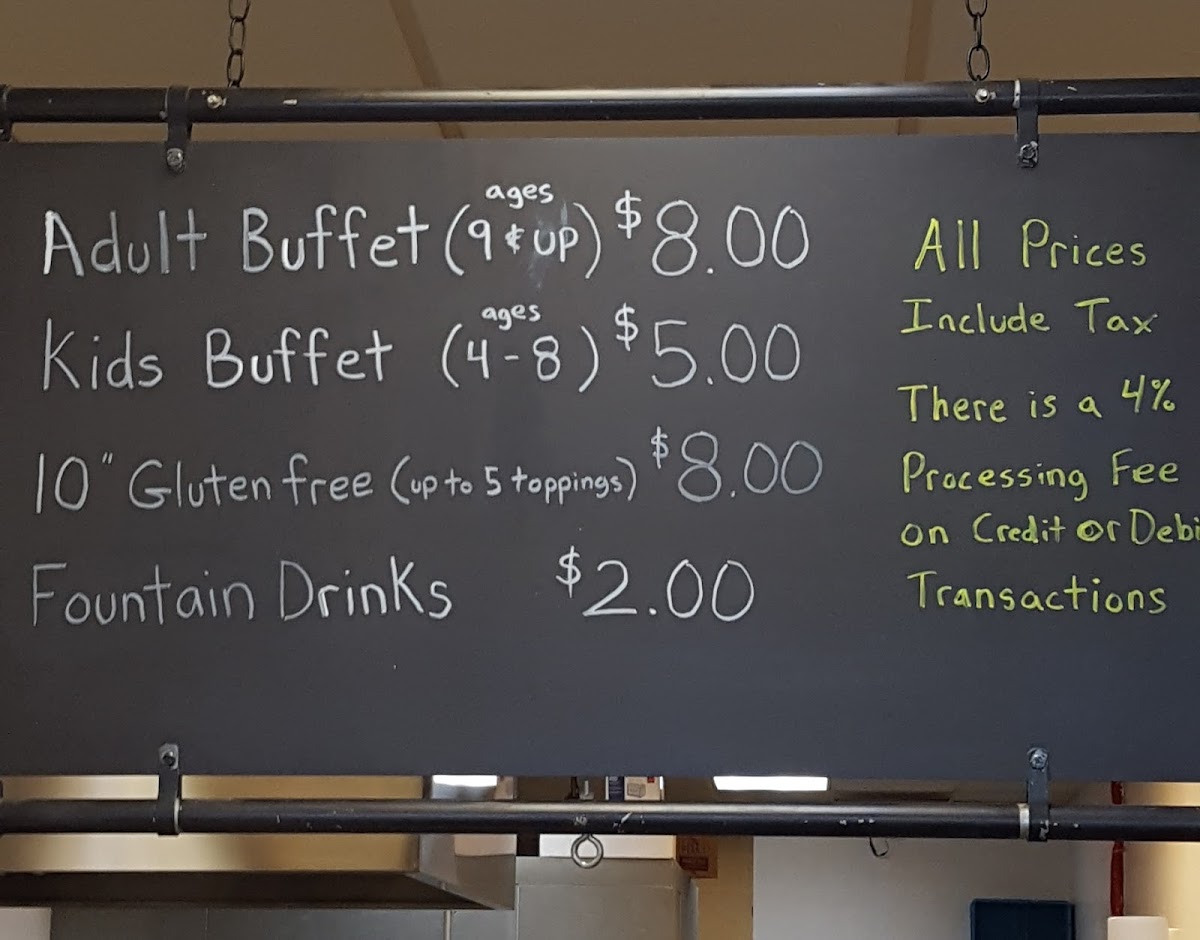 Adult Buffet (ages 9 & UP) $8.00
Kids Buffet (ages 4-8) $5.00
10" Gluten free (up to 5 toppings) $8.00
Fountain Drinks $2.00
All Prices
Include Tax
There is a 4%
Processing Fee
on Credit or Debi
Transactions